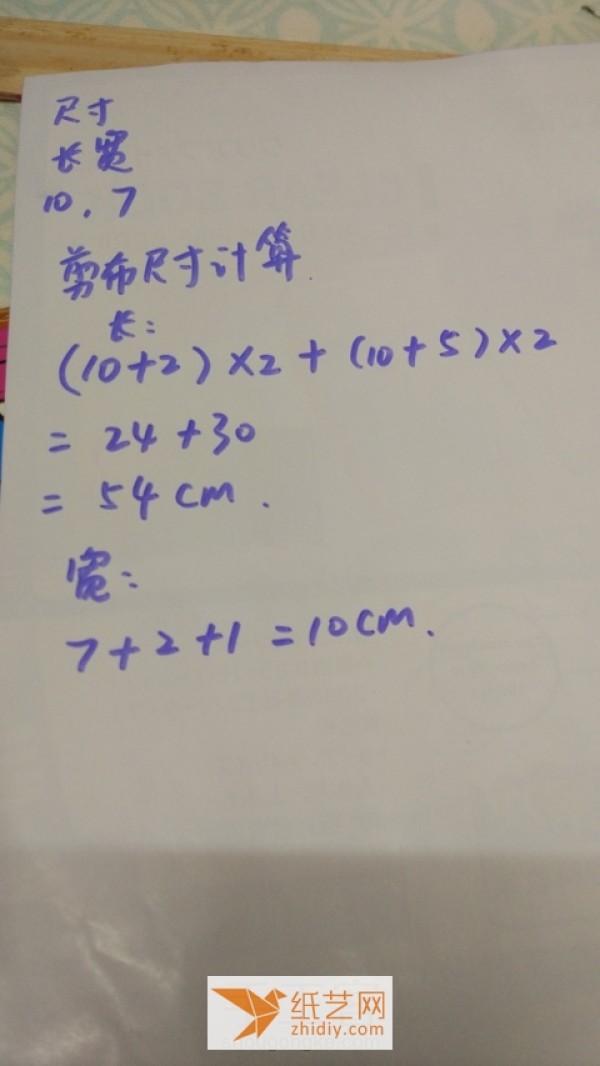 尺寸
长宽
10,7
剪布尺寸计算.
长:
(10+2)×2+(10+5)×2
= 24+30
= 54cm.
宽:
7+2+1=10cm.
纸艺网
zhidiy.com